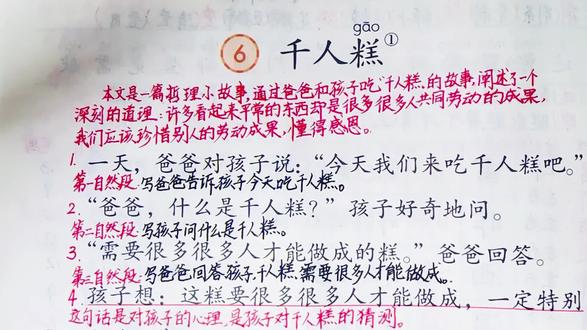 gāo
6 千人糕①
本文是一篇哲理小故事,通过爸爸和孩子吃“千人糕”的故事,阐述了一个
深刻的道理:许多看起来平常的东西却是很多很多人共同劳动的成果,
我们应该珍惜别人的劳动成果,懂得感恩。
1. 一天,爸爸对孩子说:“今天我们来吃千人糕吧。”
第一自然段:写爸爸告诉孩子今天吃千人糕。
2. “爸爸,什么是千人糕?”孩子好奇地问。
第二自然段:写孩子问什么是千人糕。
3. “需要很多很多人才能做成的糕。”爸爸回答。
第三自然段:写爸爸回答孩子千人糕需要很多人才能做成。
4. 孩子想:这糕要很多很多人才能做成,一定特别
这句话是对孩子的心理,是孩子对千人糕的猜测。